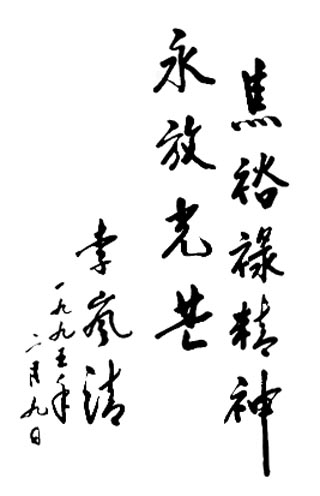 焦裕禄精神
永放光芒
李岚清
一九九五年
二月九日